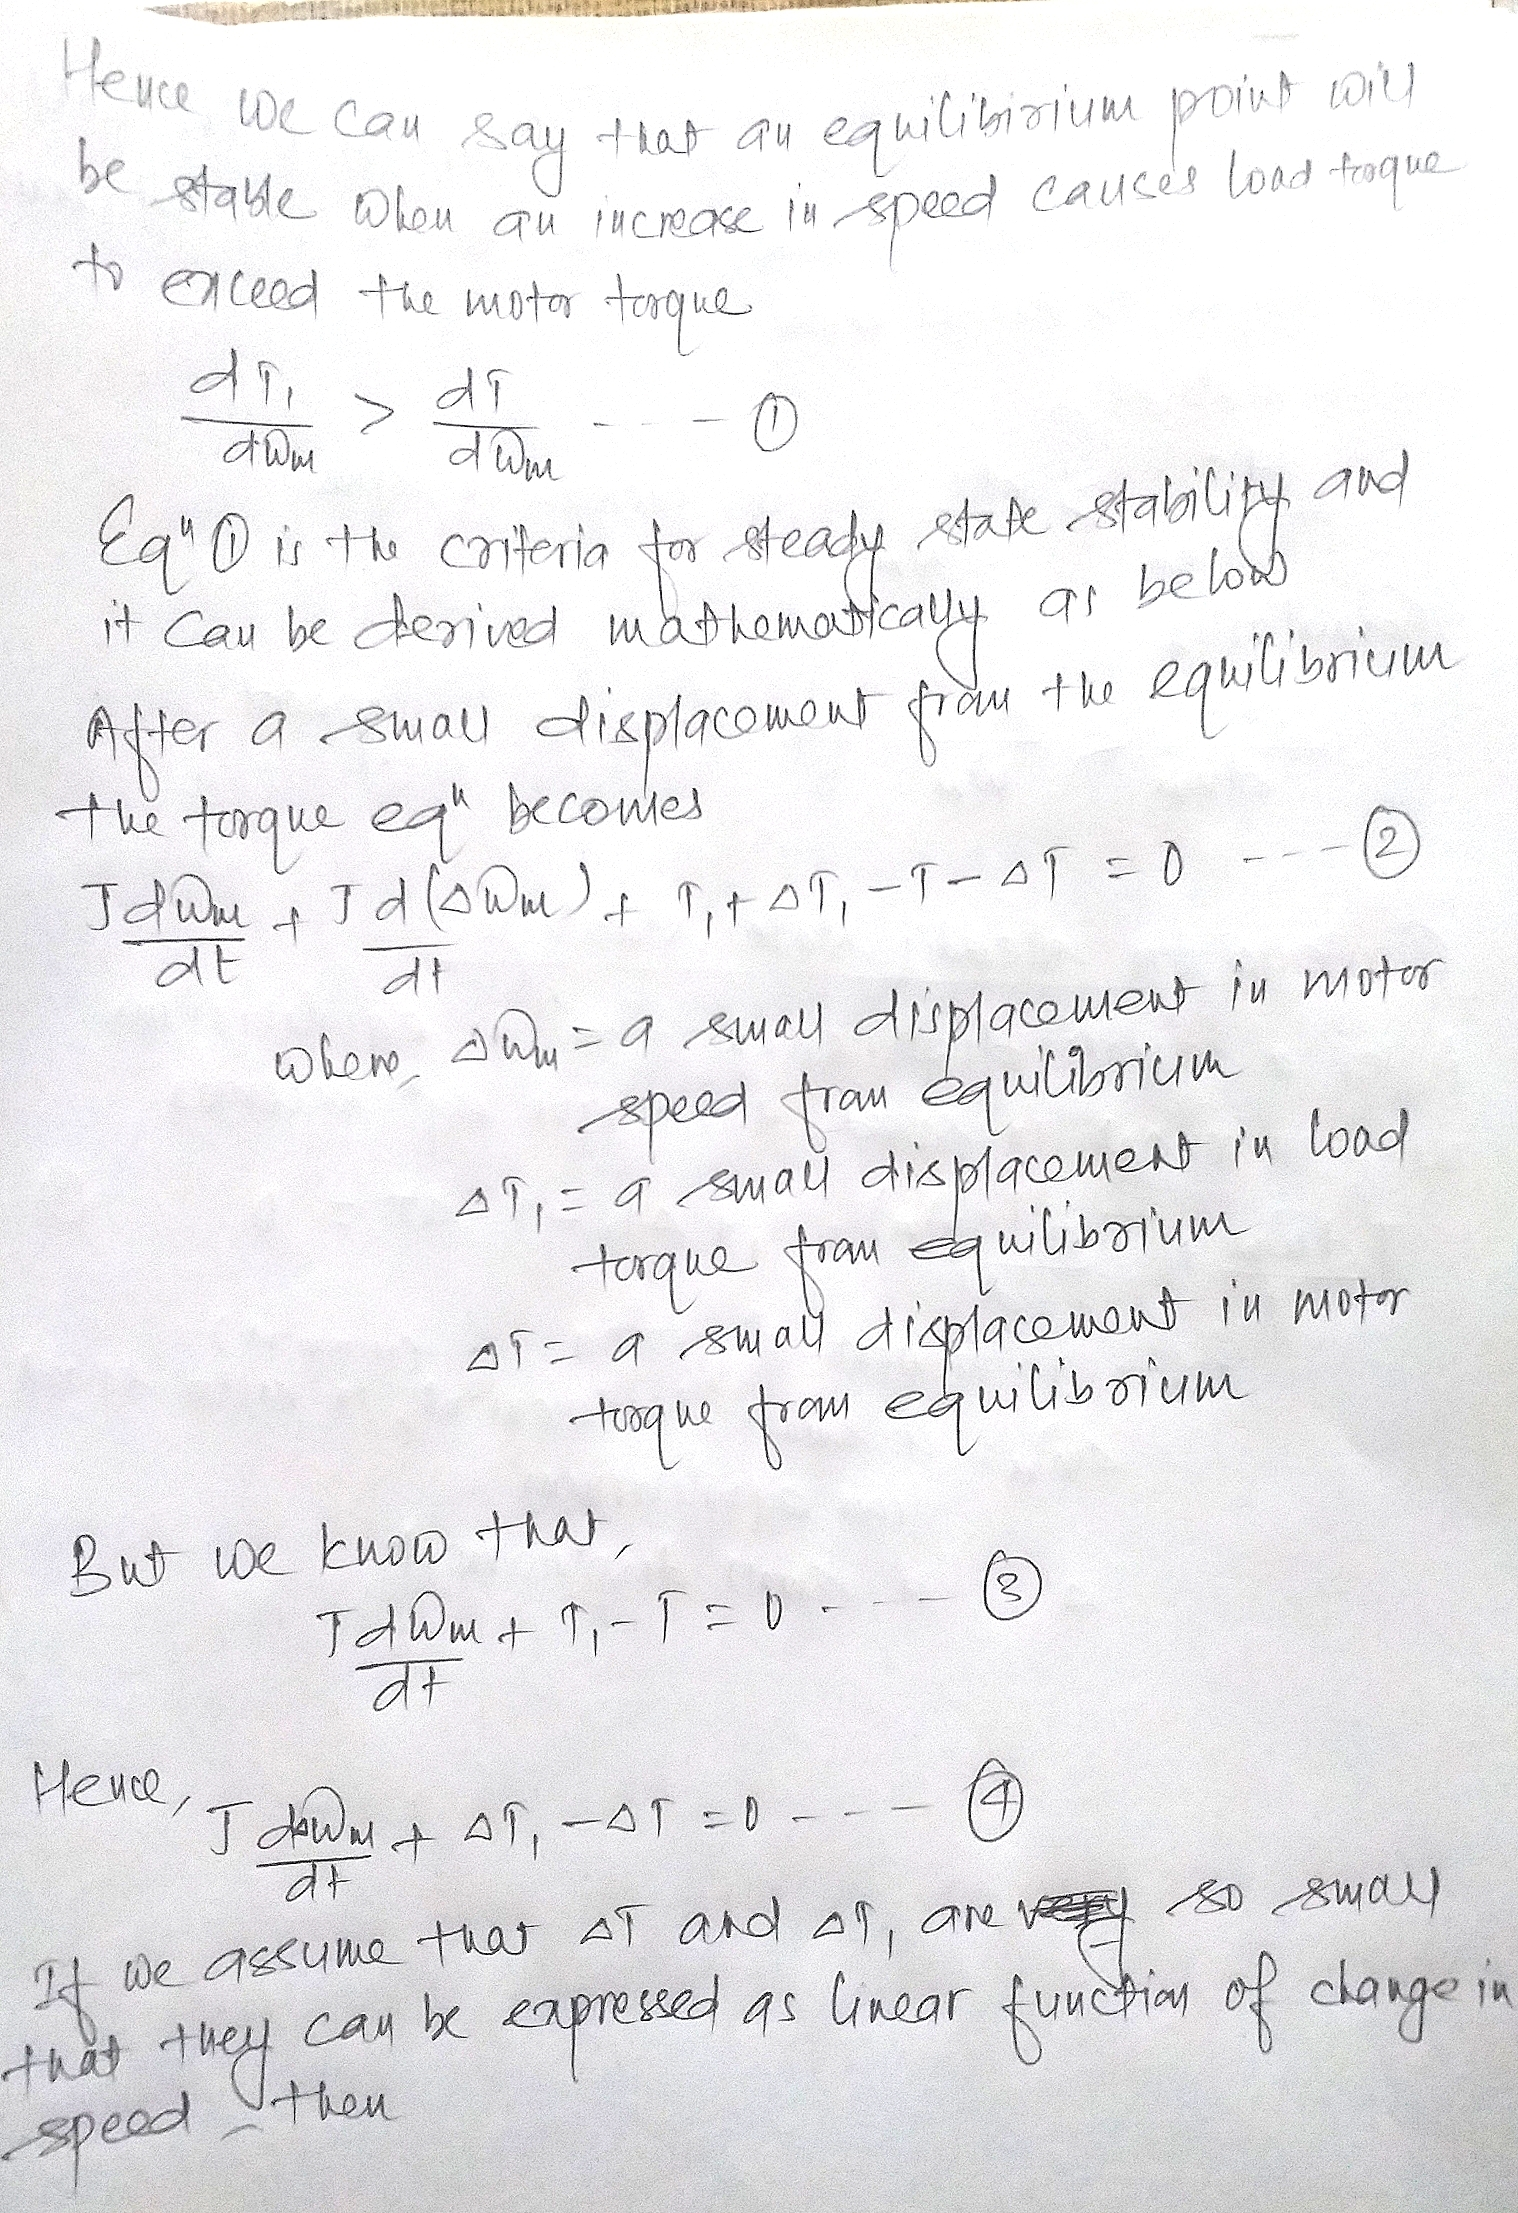 Hence we can say that an equilibirium point will
be stable when an increase in speed causes load torque
to exceed the motor torque
dT₁/dωm > dT/dωm - - - - ①
Eqⁿ ① is the criteria for steady state stability and
it can be derived mathematically as below
After a small displacement from the equilibrium
the torque eqⁿ becomes
J dωm/dt + J d(Δωm)/dt + T₁ + ΔT₁ - T - ΔT = 0 - - - - ②
where, Δωm = a small displacement in motor
speed from equilibrium
ΔT₁ = a small displacement in load
torque from equilibrium
ΔT = a small displacement in motor
torque from equilibrium
But we know that,
J dωm/dt + T₁ - T = 0 - - - - ③
Hence,
J dΔωm/dt + ΔT₁ - ΔT = 0 - - - - ④
If we assume that ΔT and ΔT₁ are so small
that they can be expressed as linear function of change in
speed, then